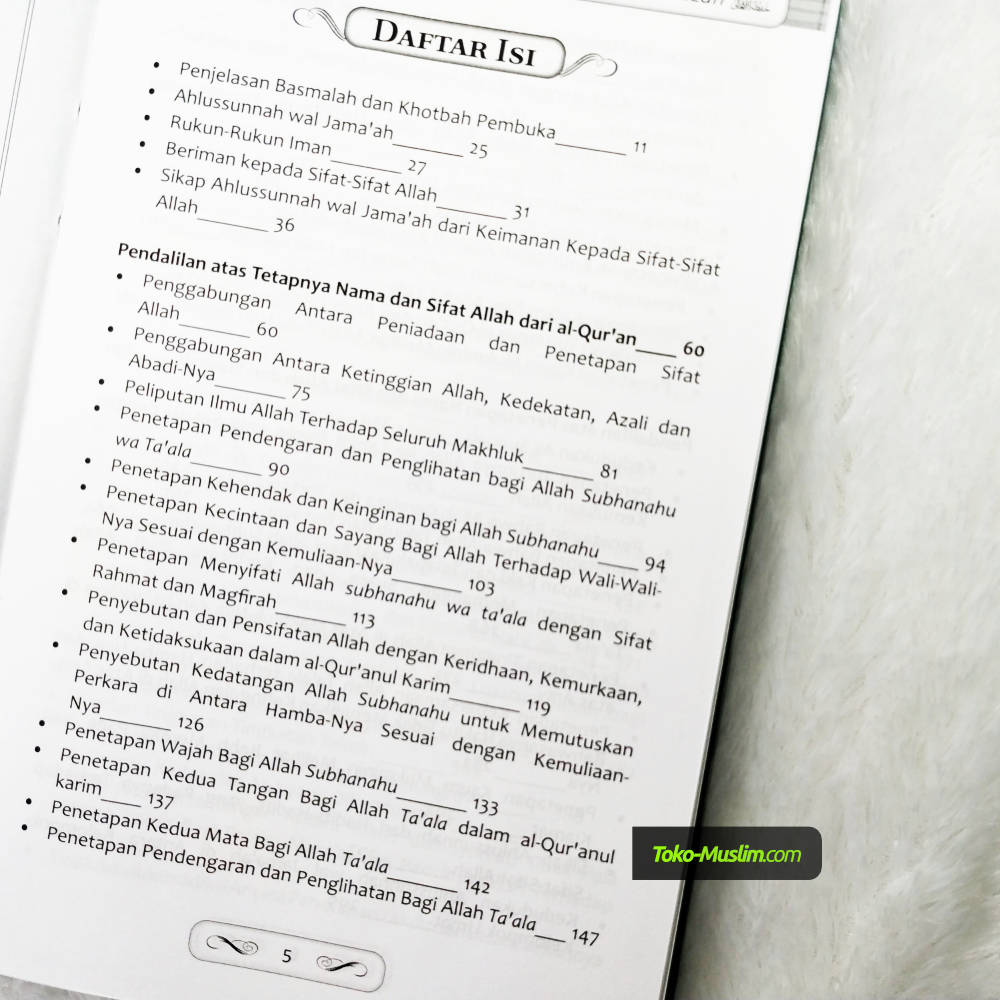 DAFTAR ISI
• Penjelasan Basmalah dan Khotbah Pembuka________ 11
• Ahlussunnah wal Jama'ah________ 25
• Rukun-Rukun Iman________ 27
• Beriman kepada Sifat-Sifat Allah________ 31
• Sikap Ahlussunnah wal Jama'ah dari Keimanan Kepada Sifat-Sifat
Allah________ 36
Pendalilan atas Tetapnya Nama dan Sifat Allah dari al-Qur'an____ 60
• Penggabungan Antara Peniadaan dan Penetapan Sifat
Allah________ 60
• Penggabungan Antara Ketinggian Allah, Kedekatan, Azali dan
Abadi-Nya________ 75
• Peliputan Ilmu Allah Terhadap Seluruh Makhluk________ 81
• Penetapan Pendengaran dan Penglihatan bagi Allah Subhanahu
wa Ta'ala________ 90
• Penetapan Kehendak dan Keinginan bagi Allah Subhanahu____ 94
• Penetapan Kecintaan dan Sayang Bagi Allah Terhadap Wali-Wali-
Nya Sesuai dengan Kemuliaan-Nya________ 103
• Penetapan Menyifati Allah subhanahu wa ta'ala dengan Sifat
Rahmat dan Magfirah________ 113
• Penyebutan dan Pensifatan Allah dengan Keridhaan, Kemurkaan,
dan Ketidaksukaan dalam al-Qur'anul Karim________ 119
• Penyebutan Kedatangan Allah Subhanahu untuk Memutuskan
Perkara di Antara Hamba-Nya Sesuai dengan Kemuliaan-
Nya________ 126
• Penetapan Wajah Bagi Allah Subhanahu________ 133
• Penetapan Kedua Tangan Bagi Allah Ta'ala dalam al-Qur'anul
karim____ 137
• Penetapan Kedua Mata Bagi Allah Ta'ala________ 142
• Penetapan Pendengaran dan Penglihatan Bagi Allah Ta'ala____ 147
5
Toko-Muslim.com